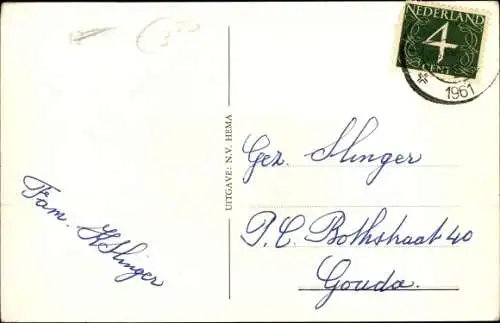 NEDERLAND
4
CENT
1961
UITGAVE: N.V. HEMA
Fam. Slinger
Gez. Slinger
P.C. Bothstraat 40
Gouda.